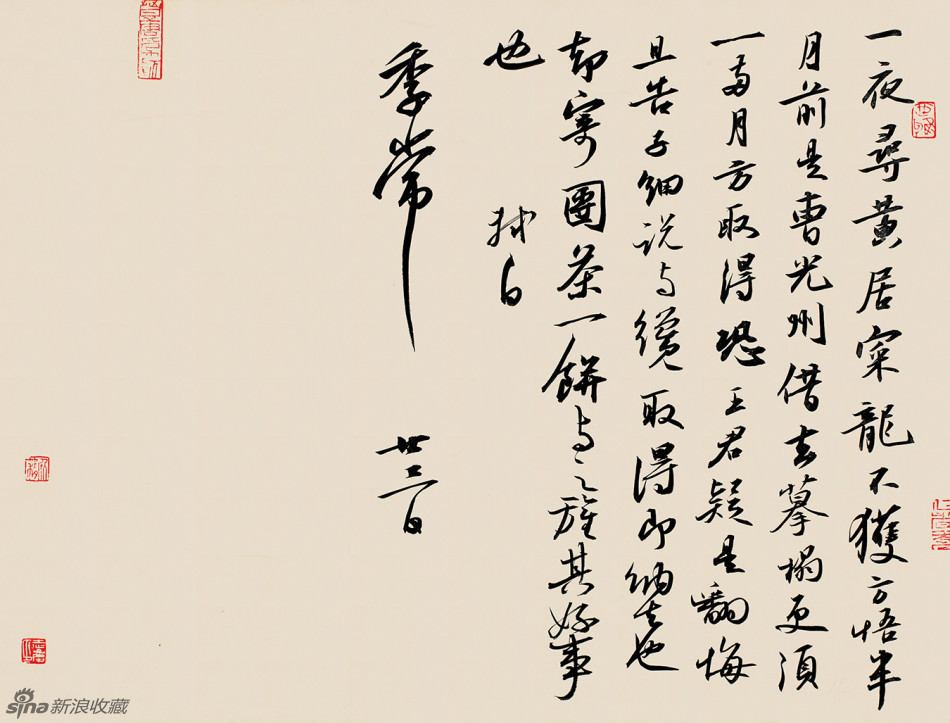 一夜尋黃居寀龍不獲方悟半
月前是曹光州借去摹搨更須
一兩月方取得恐王君疑是翻悔
且告子細說與纔取得即納去也
却寄團茶一餅與之旌其好事
也 軾白
季常 廿三日
sina新浪收藏